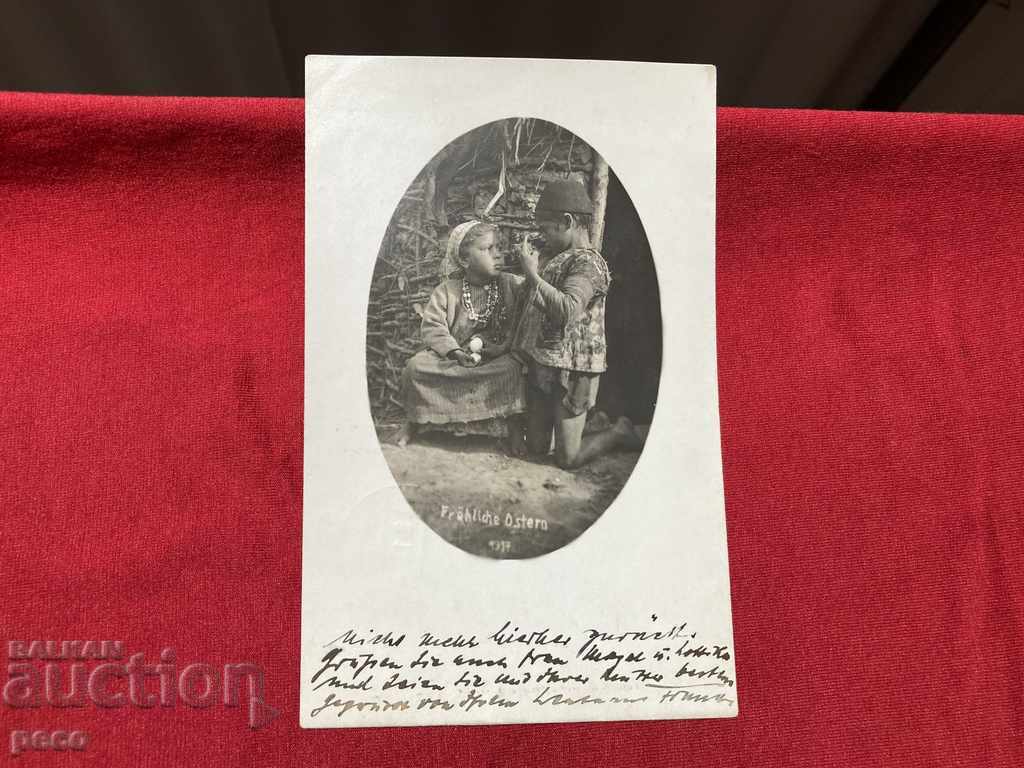 Fröhliche Ostern
1917
nicht mehr hierher zurück.
Grüßen Sie auch Frau Mayer u.
und seien Sie und Ihre bestens
gegrüsst von Ihrem
BALKAN
auction
peco